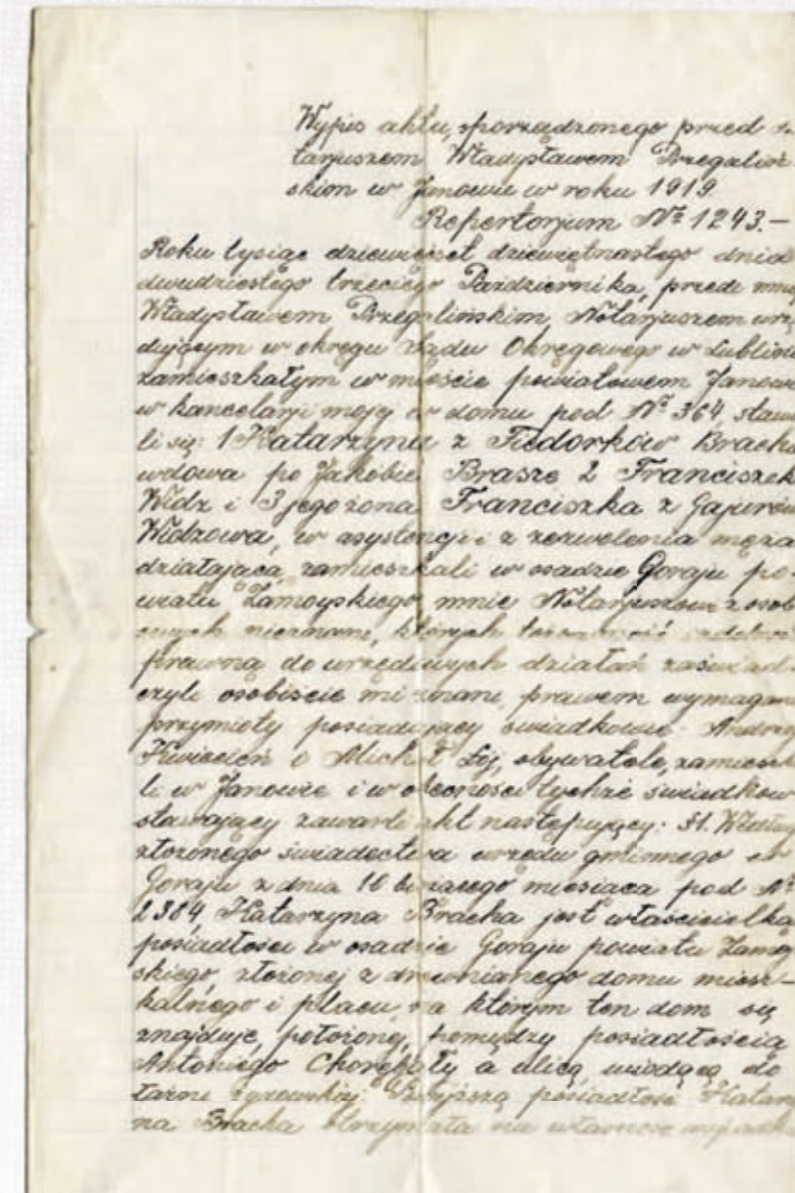 Wypis aktu, sporządzonego przed
tarjuszem Władysławem Przegaliń
skim w Janowie w roku 1919.
Repertorjum № 1243.—
Roku tysiąc dziewięćset dziewiętnastego dnia
dwudziestego trzeciego Października, przede mną
Władysławem Przegalińskim, Notarjuszem urzę
dującym w okręgu Sądu Okręgowego w Lublinie
zamieszkałym w mieście powiatowem Janowie
w kancelarji mojej w domu pod № 364, stawi
li się: 1 Katarzyna z Fiedorków Bracha
wdowa po Jakóbie Brasze 2 Franciszek
Widz i 3 jego żona Franciszka z Gajurów
Widzowa, w asystencji i z zezwolenia męża
działająca, zamieszkali w osadzie Goraju po-
wiatu Zamoyskiego, mnie Notarjuszowi z osob
nieznani, których tożsamość
prawną do urzędowych działań zaświad-
czyli osobiście mi znani, prawem wymagane
przymioty posiadający świadkowie: Andrzej
Kwiecień i Michał Łój, obywatele, zamieszka
li w Janowie i w obecności tychże świadków
stawający zawarli akt następujący: §1. Według
złożonego świadectwa urzędu gminnego w
Goraju z dnia 10 bieżącego miesiąca pod №
2384, Katarzyna Bracha jest właścicielką
posiadłości w osadzie Goraju powiatu Zamoy
skiego, złożonej z drewnianego domu miesz-
kalnego i placu, na którym ten dom się
znajduje, położonej, pomiędzy posiadłością
Antoniego Chorębały a ulicą wiodącą do
posiadłość Katarzy
na Bracha otrzymała na własność